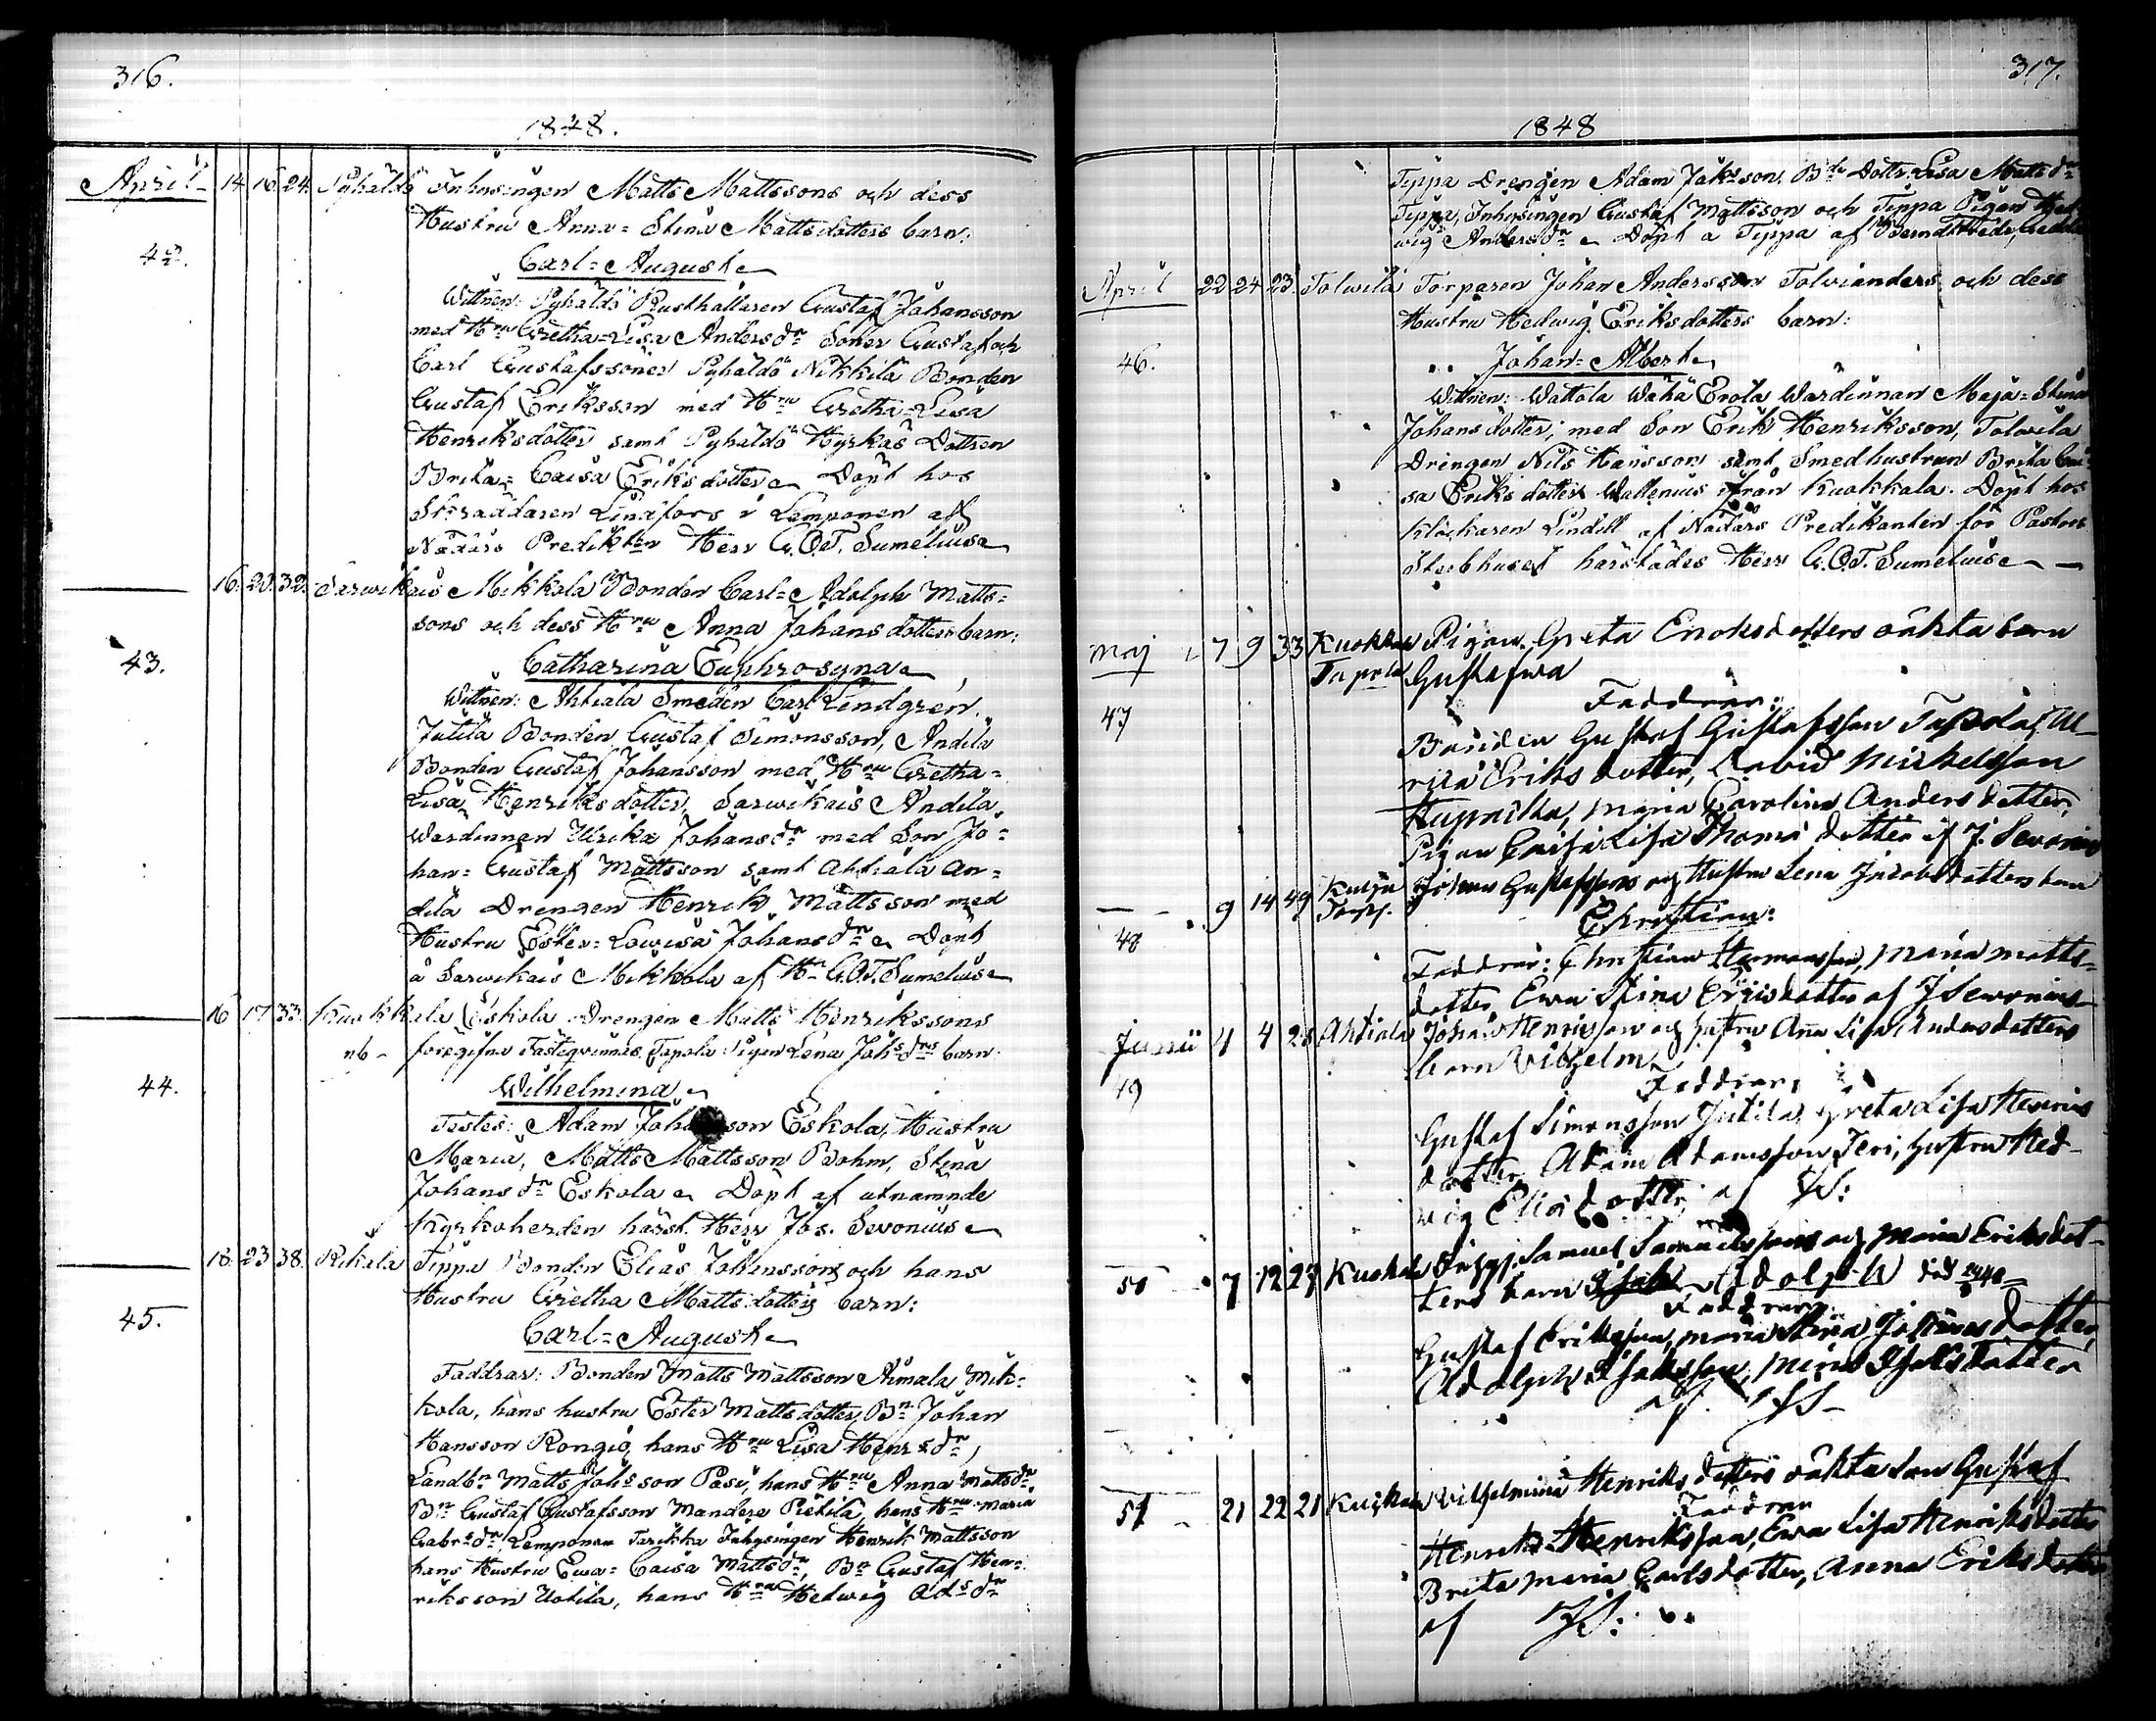 316.
1848.
April 14 16 24. Pyhäldö Inhysingen Matts Mattssons och dess
Hustru Anna=Stina Mattsdotters barn:
42. Carl=August
Wittnen: Pyhäldö Rusthållaren Gustaf Johansson
med Hru Gretha=Lisa Andersdr Söner Gustaf och
Carl Gustafssöner Pyhäldö Nikkilä Bonden
Gustaf Eriksson med Hru Gretha=Lisa
Henriksdotter samt Pyhäldö Hyrkäs Dottren
Brita=Caisa Eriksdotter Döpt hos
Skräddaren Lindfors i Lemponen af
Nådårs Predikten Herr G.O.T. Sumelius
16. 23. 32. Sarwikais Mikkola Bonden Carl=Adolph Matts=
sons och dess Hru Anna Johansdotters barn:
43. Catharina Euphrosyna
Wittnen: Ahtiala Smeden Carl Lindgren,
Jutila Bonden Gustaf Simonsson, Andila
Bonden Gustaf Johansson med Hru Gretha=
Lisa Henriksdotter, Sarwikais Andila
Wärdinnan Ulrika Johansdr med Son Jo=
han=Gustaf Mattsson samt Ahtiala An=
dila Drengen Henrik Mattsson med
Hustru Ester=Lowisa Johansdr Döpt
å Sarwikais Mikkola af Hr G.O.T. Sumelius
16 17 33. Kuokkala Eskola Drengen Matts Henrikssons
nb- föregifna Fästeqvinnas, Tapola Pigan Lena Johsdrs barn
44. Wilhelmina
Testes: Adam Joh son Eskola, Hustru
Maria, Matts Mattsson Bohm, Stina
Johansdr Eskola Döpt af utnämnde
Kyrkoherden härst. Herr Jos. Sevonius
18. 23 38. Rikala Tippa Bonden Elias Johanssons och hans
Hustru Gretha Mattsdotters barn:
45. Carl=August
Faddrar: Bonden Matts Mattsson Aimala Mik=
kola, hans hustru Ester Mattsdotter, Bn Johan
Hansson Rongio, hans Hru Lisa Henrsdr,
Landbn Matts Johsson Pasi, hans Hru Anna Mattsdr
Bn Gustaf Gustafsson Mandere Pietilä, hans Hru Maria
Gabrsdr, Lemponen Inhysingen Henrik Mattsson
hans Hustru Ewa=Caisa Mattsdr, Bn Gustaf Hen=
riksson Uotila, hans Hru Hedwig Adsdr
317.
1848
Tippa Drengen Adam Jaksson. Bde Dottr Lisa Mattsdr
Tippa, Inhysingen Gustaf Mattsson och Tippa Pigan Hed=
wig Andersdr Döpt å Tippa af
April 22 24 23. Tolwila Torparen Johan Andersson Tolvianders och dess
Hustru Hedwig Eriksdotters barn:
46. Johan=Albert
Wittnen: Wattola Wähä Erola Wärdinnan Maja=Stina
Johansdotter, med Son Erik Henriksson, Tolwila
Drengen Nils Hansson samt Smedhustrun Brita Cai=
sa Eriksdotter Wallenius ifrån Kuokkala. Döpt hos
Klockaren Lindell af Nådårs Predikanten för Pastors
Sterbhuset härstädes Herr G.O.T. Sumelius
Maj 7 9 33 Kuokkala Pigan Greta Enoksdotters oäkta barn
Tapola Gustafwa
47 Faddrar:
Bonden Gustaf Gustafsson Tapola, Ul=
rika Eriksdotter, David Mickelsson
Maria Carolina Andersdotter,
Pigan Caisa Lisa Thomsdotter af J. Sevonius
9 14 49 Johan Gustafssons och Hustru Lena Jacobsdotters barn
Torpp. Christian:
48 Faddrar: Christian Hermansson, Maria Matts=
dotter, Ewa Stina Ericsdotter af J Sevonius
Junii 4 4 28 Ahtiala Johan Henrikssons och hustru Ana Lisa Andersdotters
barn Vilhelm
49 Faddrar:
Gustaf Simonsson Jutila, Greta Lisa Henriks
dotter, Adam Adamsson Jeri, hustru Hed=
vig Eliasdotter af JS:
50 7 12 27 Kuokkala Samuel Samuelssons och Maria Eriksdot=
ters barn Adolph
Faddrar:
Gustaf Eriksson, Maria Stina Johansdotter,
Adolph Isaksson, Maria Isaksdotter
af JS
51 21 22 21 Vilhelmina Henriksdotters oäkta son Gustaf
Faddrar
Henrik Henriksson, Ewa Lisa Henriksdotter
Brita Maria Carlsdotter, Anna Eriksdotter
af JS: